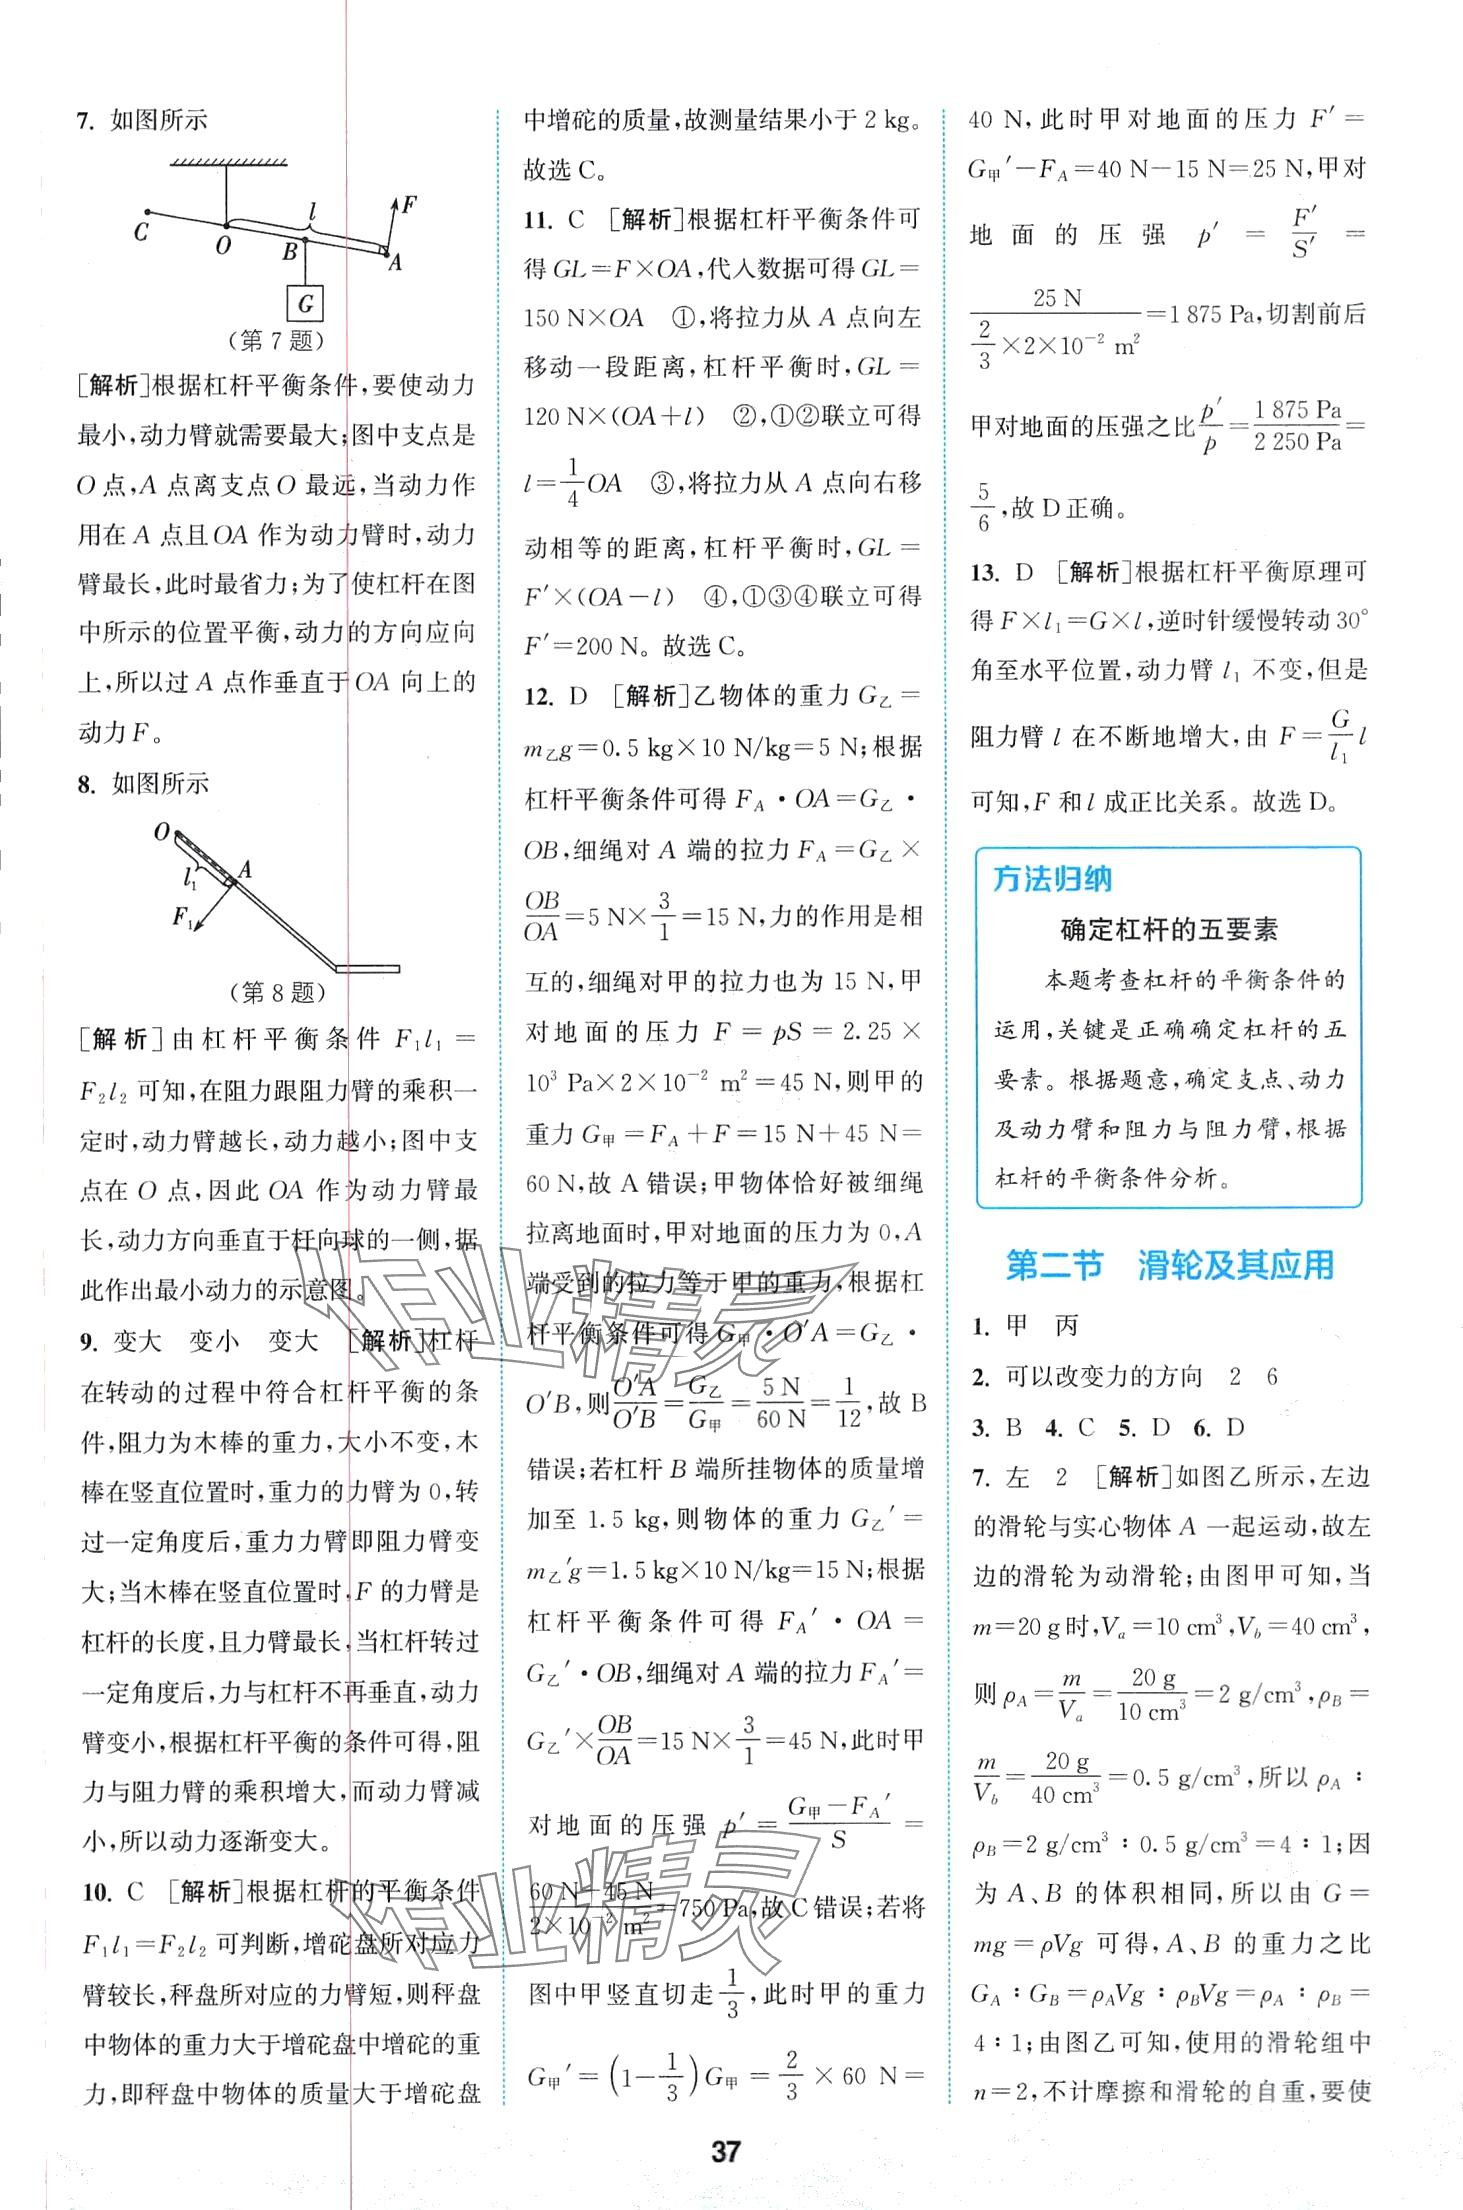 7. 如图所示
C O B A l F G
(第7题)
[解析]根据杠杆平衡条件,要使动力
最小,动力臂就需要最大;图中支点是
O点,A点离支点O最远,当动力作
用在A点且OA作为动力臂时,动力
臂最长,此时最省力;为了使杠杆在图
中所示的位置平衡,动力的方向应向
上,所以过A点作垂直于OA向上的
动力F。
8. 如图所示
O A l₁ F₁
(第8题)
[解析]由杠杆平衡条件F₁l₁=
F₂l₂可知,在阻力跟阻力臂的乘积一
定时,动力臂越长,动力越小;图中支
点在O点,因此OA作为动力臂最
长,动力方向垂直于杆向球的一侧,据
此作出最小动力的示意图。
9. 变大 变小 变大 [解析]杠杆
在转动的过程中符合杠杆平衡的条
件,阻力为木棒的重力,大小不变,木
棒在竖直位置时,重力的力臂为0,转
过一定角度后,重力力臂即阻力臂变
大;当木棒在竖直位置时,F的力臂是
杠杆的长度,且力臂最长,当杠杆转过
一定角度后,力与杠杆不再垂直,动力
臂变小,根据杠杆平衡的条件可得,阻
力与阻力臂的乘积增大,而动力臂减
小,所以动力逐渐变大。
10. C [解析]根据杠杆的平衡条件
F₁l₁=F₂l₂可判断,增砣盘所对应力
臂较长,秤盘所对应的力臂短,则秤盘
中物体的重力大于增砣盘中增砣的重
力,即秤盘中物体的质量大于增砣盘
中增砣的质量,故测量结果小于2 kg。
故选C。
11. C [解析]根据杠杆平衡条件可
得GL=F×OA,代入数据可得GL=
150 N×OA ①,将拉力从A点向左
移动一段距离,杠杆平衡时,GL=
120 N×(OA+l) ②,①②联立可得
l=1/4 OA ③,将拉力从A点向右移
动相等的距离,杠杆平衡时,GL=
F′×(OA-l) ④,①③④联立可得
F′=200 N。故选C。
12. D [解析]乙物体的重力G乙=
m乙g=0.5 kg×10 N/kg=5 N;根据
杠杆平衡条件可得F_A·OA=G乙·
OB,细绳对A端的拉力F_A=G乙×
OB/OA=5 N×3/1=15 N,力的作用是相
互的,细绳对甲的拉力也为15 N,甲
对地面的压力F=pS=2.25×
10³ Pa×2×10⁻² m²=45 N,则甲的
重力G甲=F_A+F=15 N+45 N=
60 N,故A错误;甲物体恰好被细绳
拉离地面时,甲对地面的压力为0,A
端受到的拉力等于甲的重力,根据杠
杆平衡条件可得G甲·O′A=G乙·
O′B,则O′A/O′B=G乙/G甲=5 N/60 N=1/12,故B
错误;若杠杆B端所挂物体的质量增
加至1.5 kg,则物体的重力G乙′=
m乙′g=1.5 kg×10 N/kg=15 N;根据
杠杆平衡条件可得F_A′·OA=
G乙′·OB,细绳对A端的拉力F_A′=
G乙′×OB/OA=15 N×3/1=45 N,此时甲
对地面的压强p′=(G甲-F_A′)/S=
(60 N-45 N)/(2×10⁻² m²)=750 Pa,故C错误;若将
图中甲竖直切走1/3,此时甲的重力
G甲′=(1-1/3)G甲=2/3×60 N=
40 N,此时甲对地面的压力F′=
G甲′-F_A=40 N-15 N=25 N,甲对
地面的压强p′=F′/S′=
25 N/(2/3×2×10⁻² m²)=1 875 Pa,切割前后
甲对地面的压强之比p′/p=1 875 Pa/2 250 Pa=
5/6,故D正确。
13. D [解析]根据杠杆平衡原理可
得F×l₁=G×l,逆时针缓慢转动30°
角至水平位置,动力臂l₁不变,但是
阻力臂l在不断地增大,由F=G/l₁ l
可知,F和l成正比关系。故选D。
方法归纳
确定杠杆的五要素
本题考查杠杆的平衡条件的
运用,关键是正确确定杠杆的五
要素。根据题意,确定支点、动力
及动力臂和阻力与阻力臂,根据
杠杆的平衡条件分析。
第二节 滑轮及其应用
1. 甲 丙
2. 可以改变力的方向 2 6
3. B 4. C 5. D 6. D
7. 左 2 [解析]如图乙所示,左边
的滑轮与实心物体A一起运动,故左
边的滑轮为动滑轮;由图甲可知,当
m=20 g时,Vₐ=10 cm³,V_b=40 cm³,
则ρ_A=m/Vₐ=20 g/10 cm³=2 g/cm³,ρ_B=
m/V_b=20 g/40 cm³=0.5 g/cm³,所以ρ_A∶
ρ_B=2 g/cm³∶0.5 g/cm³=4∶1;因
为A、B的体积相同,所以由G=
mg=ρVg可得,A、B的重力之比
G_A∶G_B=ρ_AVg∶ρ_BVg=ρ_A∶ρ_B=
4∶1;由图乙可知,使用的滑轮组中
n=2,不计摩擦和滑轮的自重,要使
37
作业精灵
作业精灵